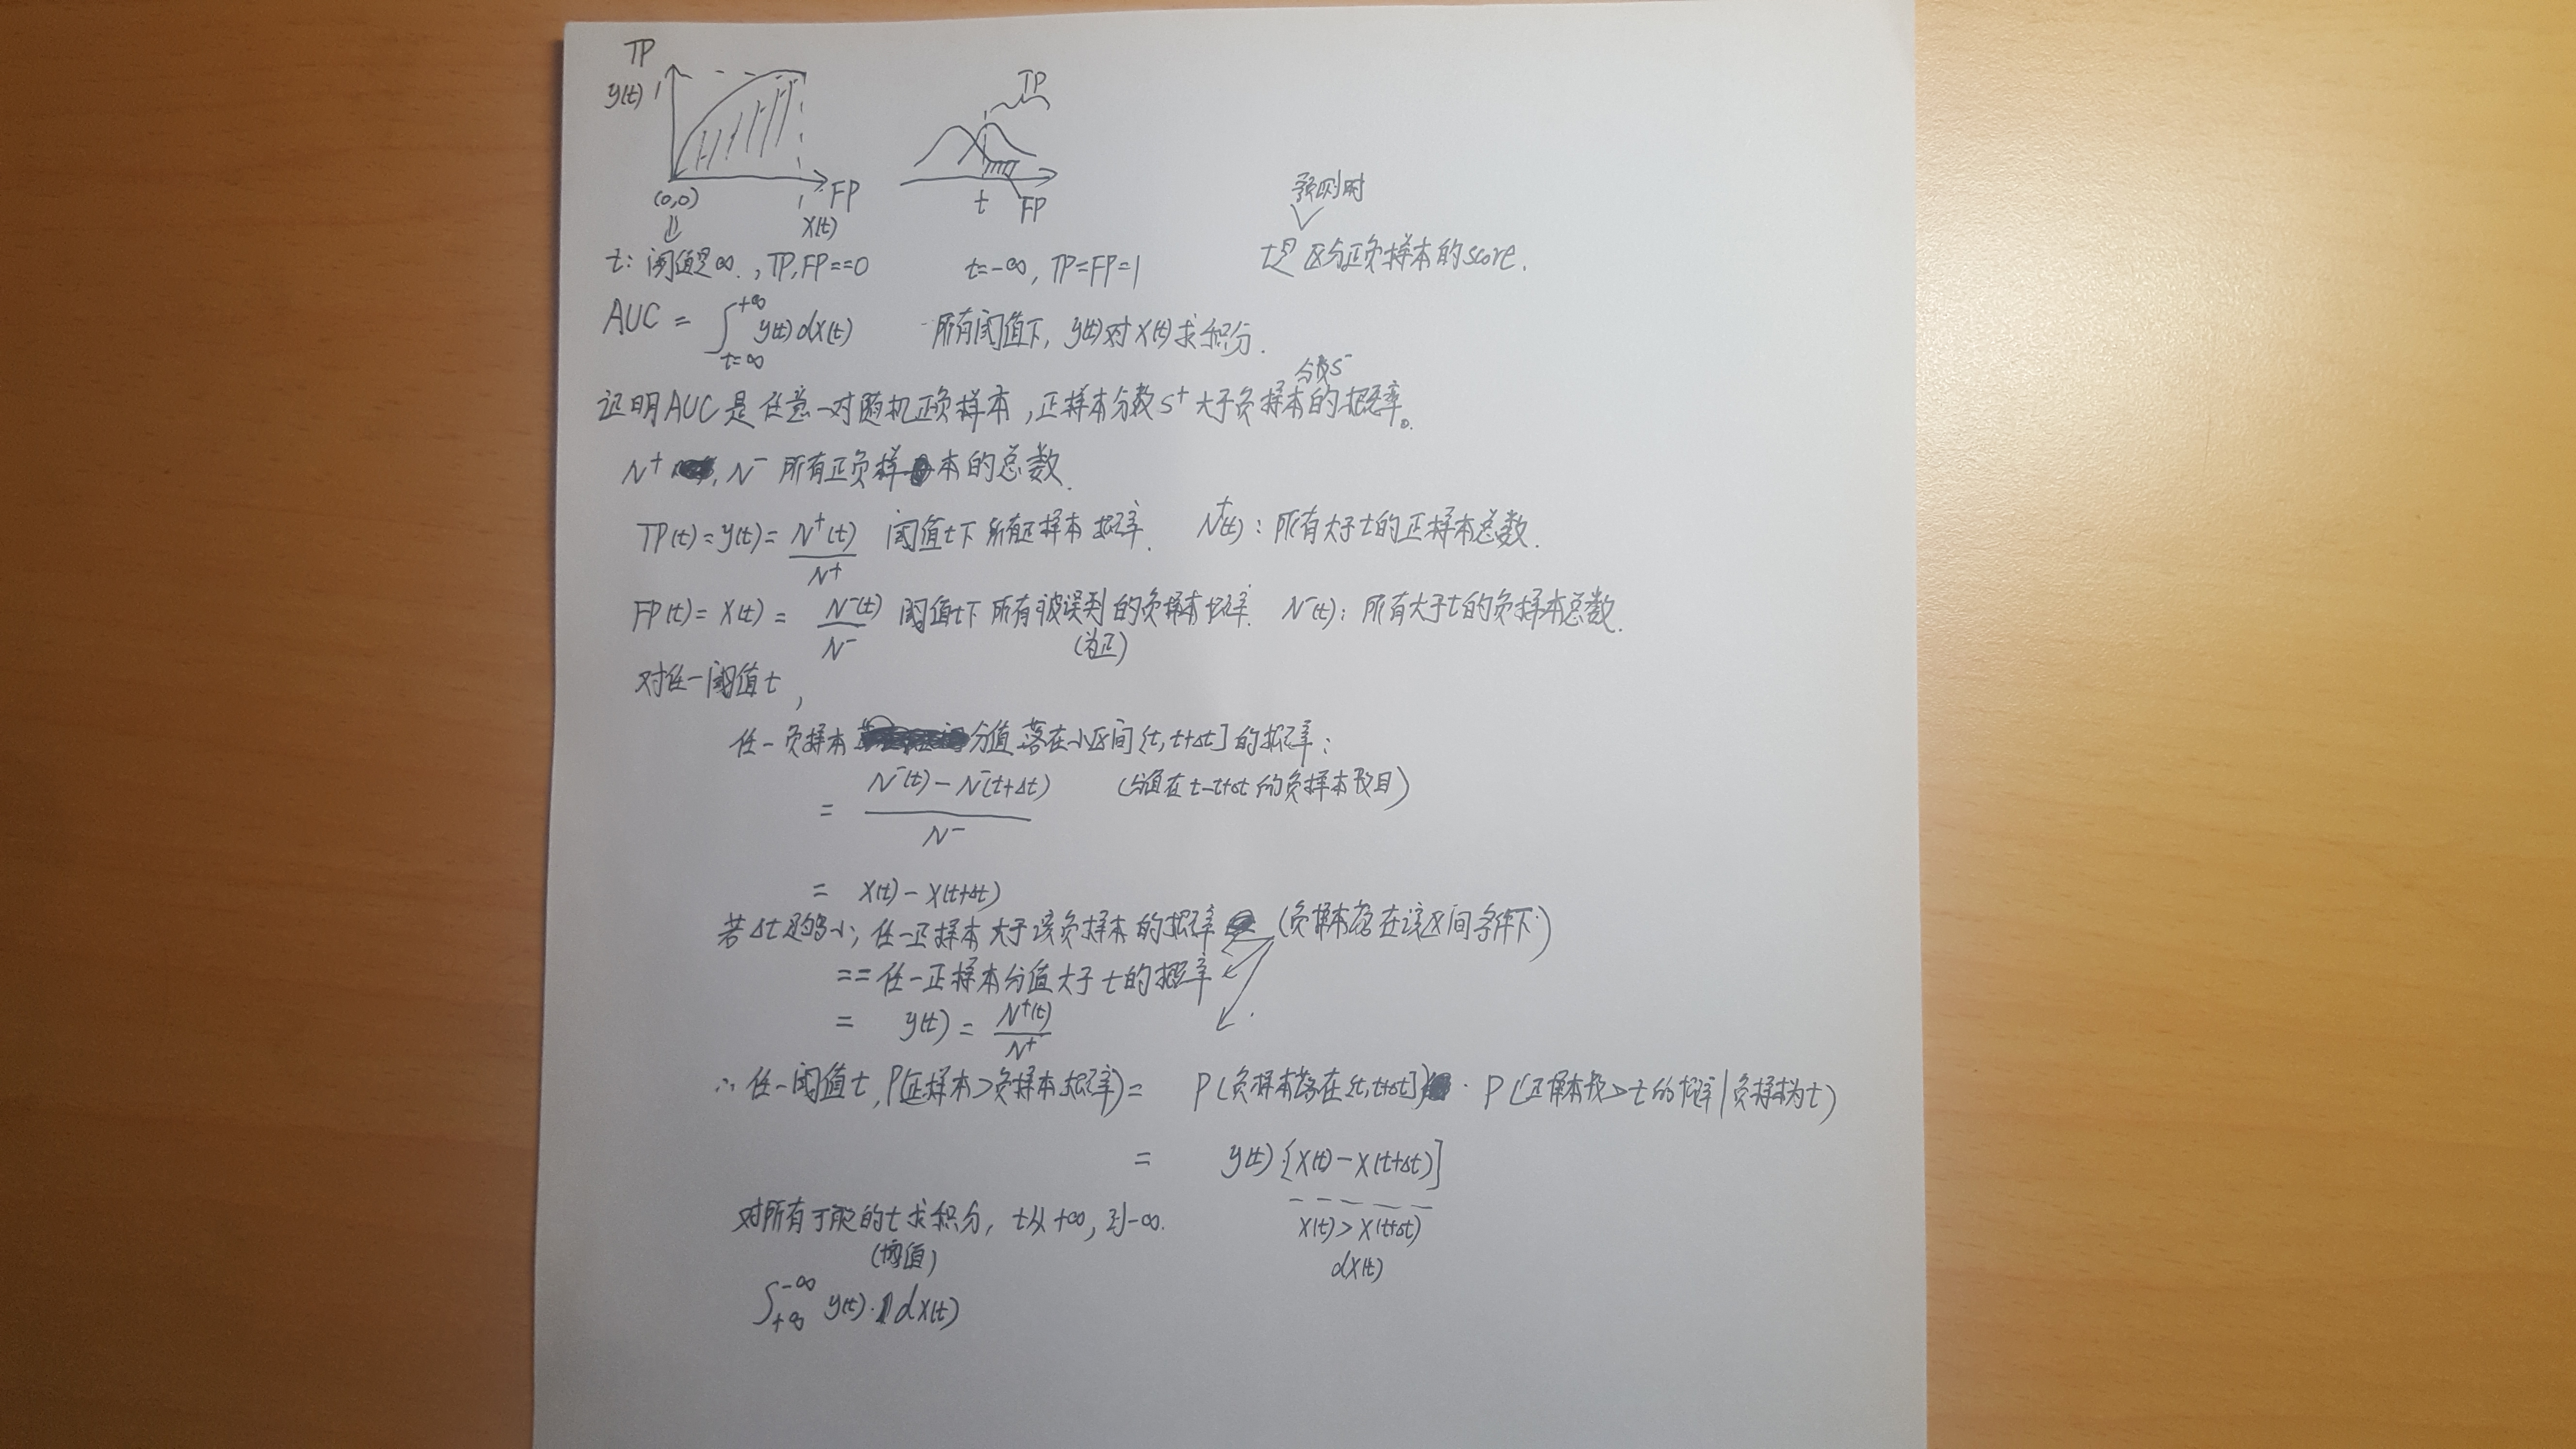 TP
y(t) 1
(0,0)
1
FP
x(t)
TP
t
FP
预测时
t: 阈值是∞., TP,FP==0
t=-∞, TP=FP=1
t是 区分正负样本的score.
AUC = ∫_{t=∞}^{+∞} y(t) dx(t) 所有阈值下, y(t)对x(t)求积分.
分数s⁻
证明AUC是任意一对随机正负样本,正样本分数s⁺大于负样本的概率。
N⁺, N⁻ 所有正负样本的总数.
TP(t)=y(t)= N⁺(t)/N⁺ 阈值t下 所有正样本概率. N⁺(t): 所有大于t的正样本总数.
FP(t)= x(t) = N⁻(t)/N⁻ 阈值t下 所有被误判的负样本概率. N⁻(t): 所有大于t的负样本总数.
(为正)
对任一阈值t,
任一负样本分值落在小区间[t, t+Δt]的概率:
= (N⁻(t) - N⁻(t+Δt))/N⁻ (分值在t-t+Δt的负样本数目)
= x(t) - x(t+Δt)
若Δt足够小, 任一正样本大于该负样本的概率 (负样本落在该区间条件下)
==任一正样本分值大于t的概率
= y(t) = N⁺(t)/N⁺
∴ 任一阈值t, P(正样本>负样本概率) = P(负样本落在[t, t+Δt]) · P(正样本>t的概率|负样本为t)
= y(t)·[x(t) - x(t+Δt)]
对所有可能的t求积分, t从+∞, 到-∞.
x(t) > x(t+Δt)
(阈值)
dx(t)
∫_{+∞}^{-∞} y(t)·dx(t)